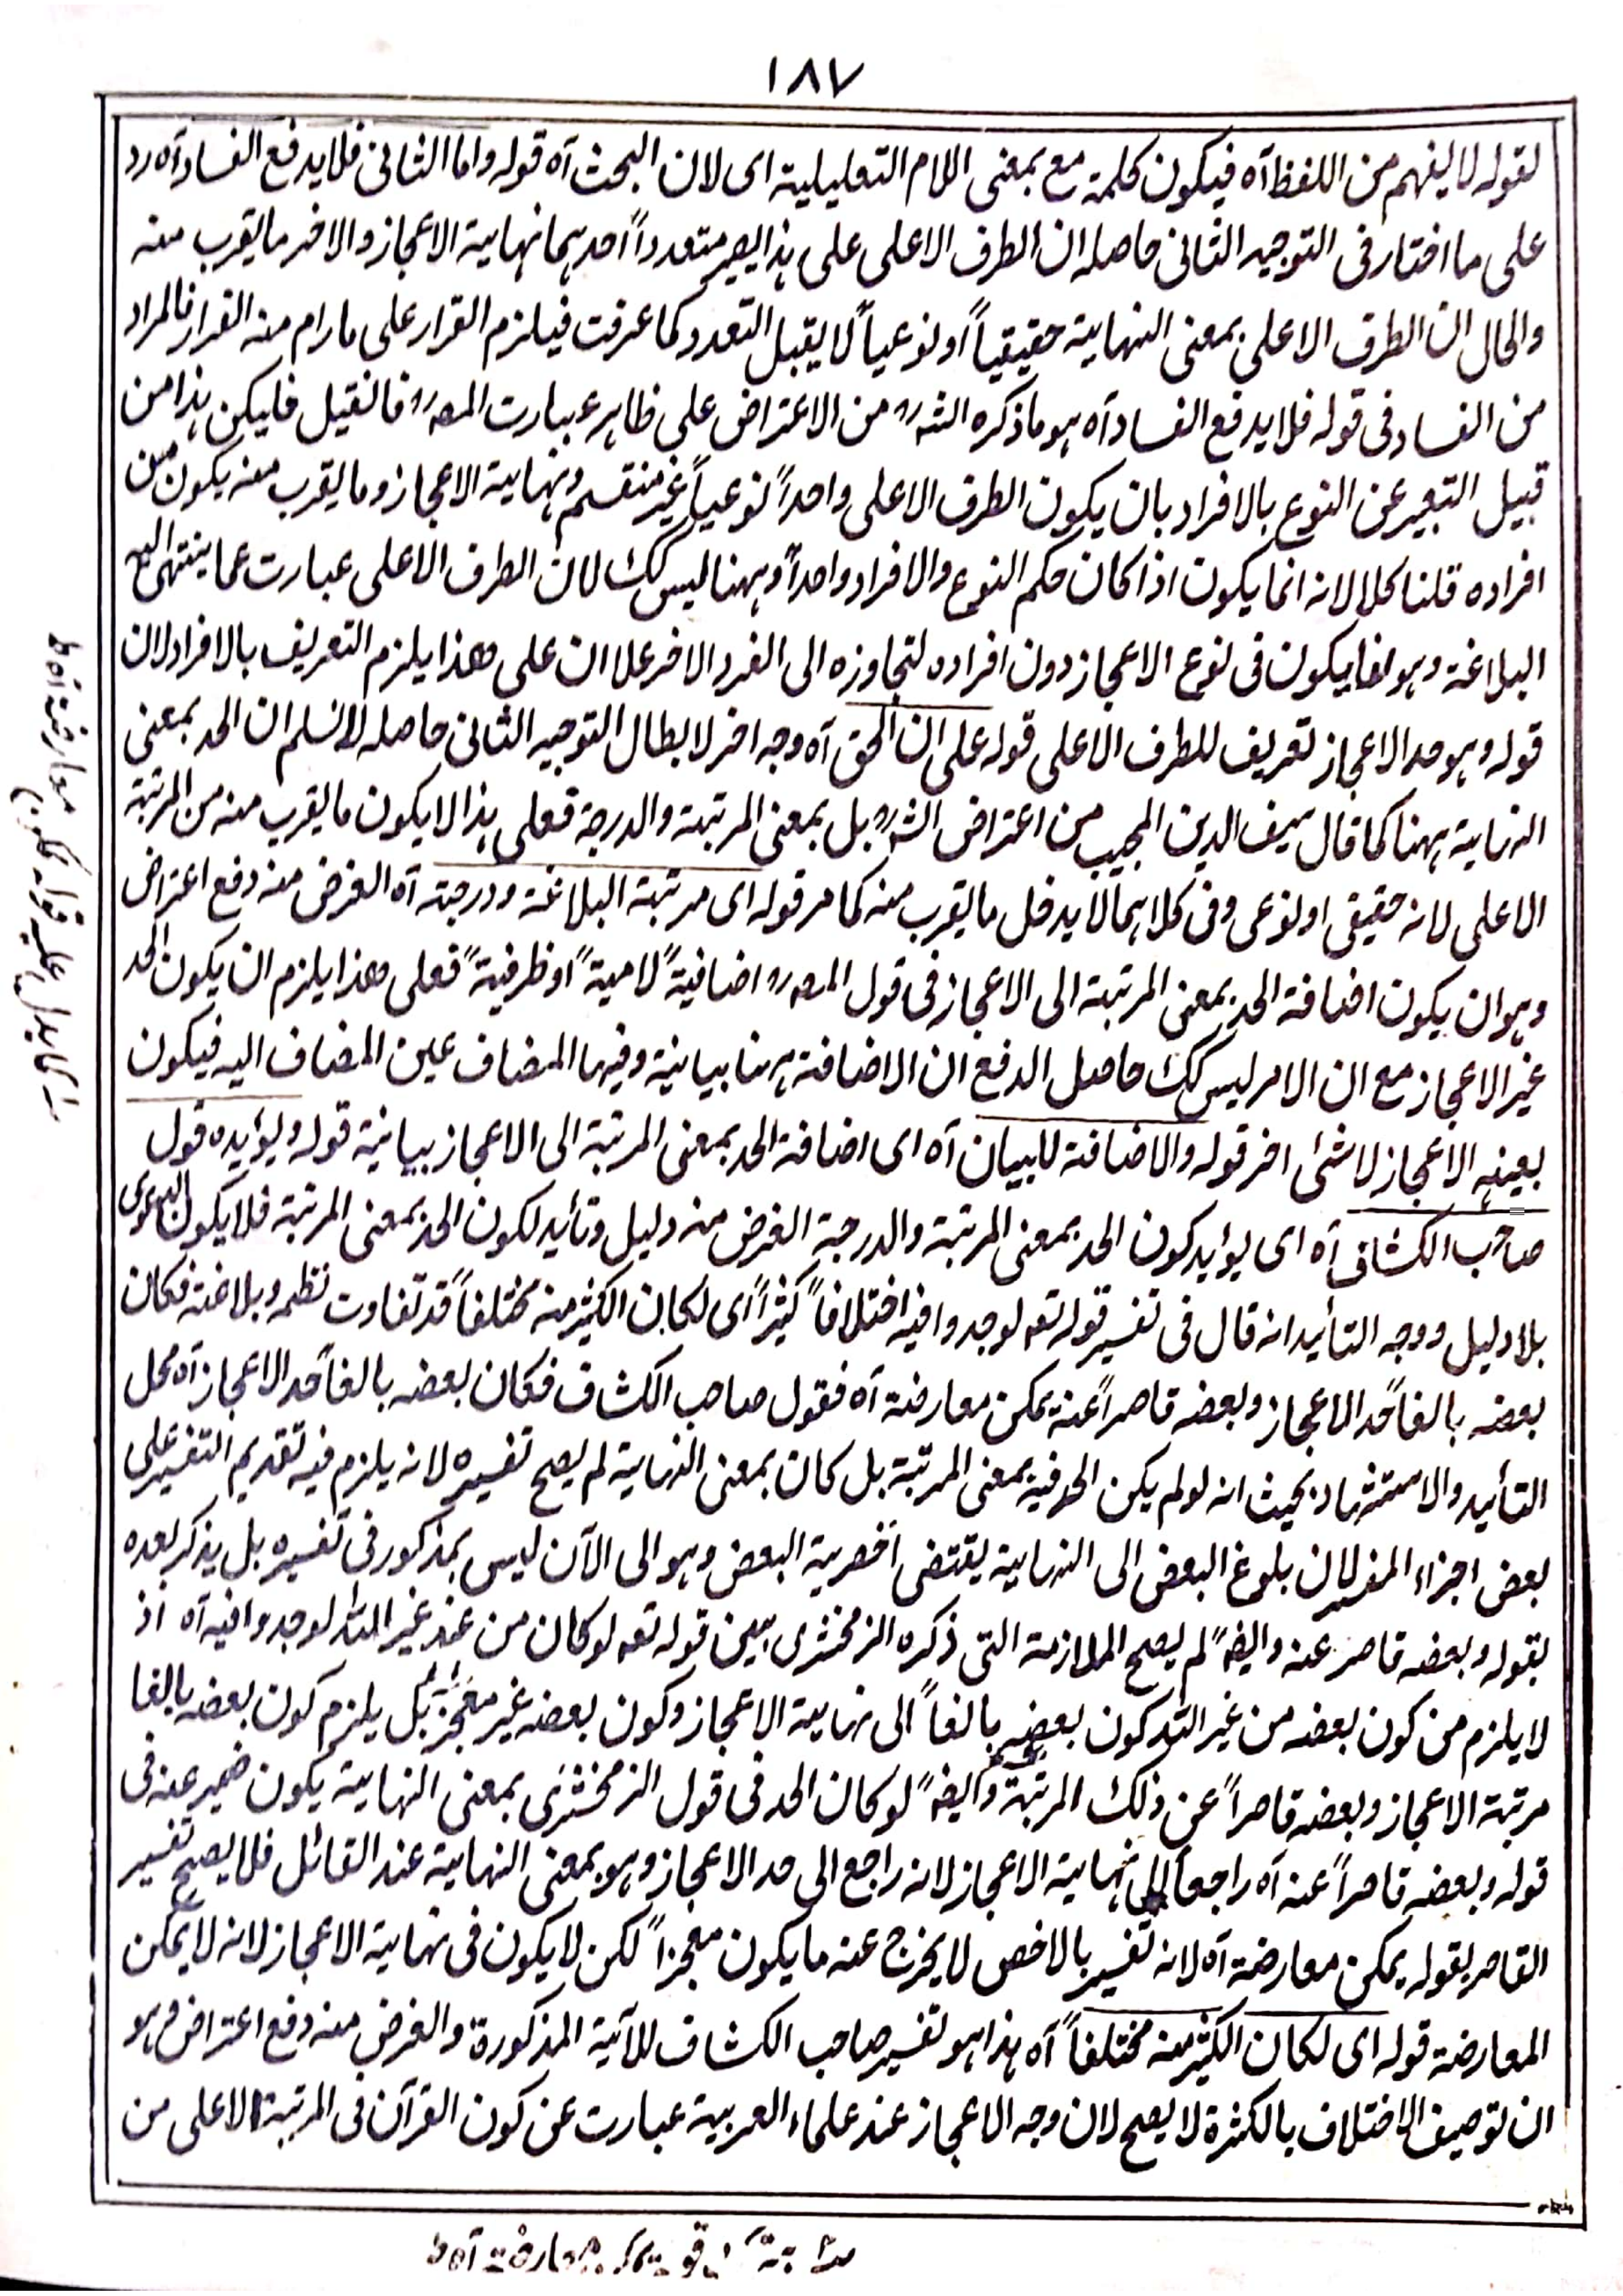 ١٨٧
لقوله لا یفهم من اللفظ آه فیکون کلمة مع بمعنی اللام التعلیلیة ای لان البحث آه قوله واما الثانی فلا یدفع الفساد آه رد
علی ما اختار فی التوجیه الثانی حاصله ان الطرف الاعلی علی هذا یصیر متعدداً احدهما نهایة الاعجاز والاخر ما یقرب منه
والحال ان الطرف الاعلی بمعنی النهایة حقیقیاً او نوعیاً لا یقبل التعدد کما عرفت فیلزم القرار علی ما رام منه الفرار فالمراد
من الفساد فی قوله فلا یدفع الفساد آه هو ما ذکره الشه رح من الاعتراض علی ظاهر عبارت المصه رح فانقیل فلیکن هذا من
قبیل التعبیر عن النوع بالافراد بان یکون الطرف الاعلی واحداً نوعیاً غیر منقسم ونهایة الاعجاز وما یقرب منه یکون من
افراده قلنا کلا لانه انما یکون اذا کان حکم النوع والافراد واحداً وههنا لیس کک لان الطرف الاعلی عبارت عما ینتهی الیه
البلاغة وهو انما یکون فی نوع الاعجاز دون افراده لتجاوزه الی الفرد الاخر علا ان علی هذا یلزم التعریف بالافراد لان
قوله وهو حد الاعجاز تعریف للطرف الاعلی قوله علی ان الحق آه وجه اخر لابطال التوجیه الثانی حاصله لا نسلم ان الحد بمعنی
النهایة ههنا کما قال سیف الدین المجیب من اعتراض الشه رح بل بمعنی المرتبة والدرجة فعلی هذا لا یکون ما یقرب منه من المرتبة
الاعلی لانه حقیقی او نوعی وفی کلاهما لا یدخل ما یقرب منه کما مر قوله ای مرتبة البلاغة ودرجته آه الغرض منه دفع اعتراض
وهو ان یکون اضافة الحد بمعنی المرتبة الی الاعجاز فی قول المصه رح اضافیةً لامیةً او ظرفیةً فعلی هذا یلزم ان یکون الحد
غیر الاعجاز مع ان الامر لیس کک حاصل الدفع ان الاضافة ههنا بیانیة وفیها المضاف عین المضاف الیه فیکون
بعینه الاعجاز لا شئ اخر قوله والاضافة للبیان آه ای اضافة الحد بمعنی المرتبة الی الاعجاز بیانیة قوله ویؤیده قول
صاحب الکشاف آه ای یؤید کون الحد بمعنی المرتبة والدرجة الغرض منه دلیل وتأید لکون الحد بمعنی المرتبة فلا یکون الدعوی
بلا دلیل ووجه التأیید انه قال فی تفسیر قوله تعه لوجدوا فیه اختلافاً کثیراً ای لکان الکثیر منه مختلفاً قد تفاوت نظمه وبلاغته فکان
بعضه بالغاً حد الاعجاز وبعضه قاصراً عنه یمکن معارضته آه فقول صاحب الکشاف فکان بعضه بالغاً حد الاعجاز آه محل
التأیید والاستشهاد بحیث انه لو لم یکن الحد فیه بمعنی المرتبة بل کان بمعنی النهایة لم یصح تفسیره لانه یلزم فیه تقدیم التفسیر علی
بعض اجزاء المفسر لان بلوغ البعض الی النهایة یقتضی اخصریة البعض وهو الی الآن لیس بمذکور فی تفسیره بل یذکر بعده
بقوله وبعضه قاصر عنه وایضهً لم یصح الملازمة التی ذکره الزمخشری بین قوله تعه لو کان من عند غیر الله لوجدوا فیه آه اذ
لا یلزم من کون بعضه من غیر الله کون بعضه بالغاً الی نهایة الاعجاز وکون بعضه غیر معجز بل یلزم کون بعضه بالغا
مرتبة الاعجاز وبعضه قاصراً عن ذلک المرتبة وایضهً لو کان الحد فی قول الزمخشری بمعنی النهایة یکون ضمیر عنه فی
قوله وبعضه قاصراً عنه آه راجعاً الی نهایة الاعجاز لانه راجع الی حد الاعجاز وهو بمعنی النهایة عند القائل فلا یصح تفسیر
القاصر بقوله یمکن معارضته آه لانه تفسیر بالاخص لا یخرج عنه ما یکون معجزاً لکن لا یکون فی نهایة الاعجاز لانه لا یمکن
المعارضة قوله ای لکان الکثیر منه مختلفاً آه هذا هو تفسیر صاحب الکشاف للآیة المذکورة والغرض منه دفع اعتراض وهو
ان توصیف الاختلاف بالکثرة لا یصح لان وجه الاعجاز عند علماء العربیة عبارت عن کون القرآن فی المرتبة الاعلی من